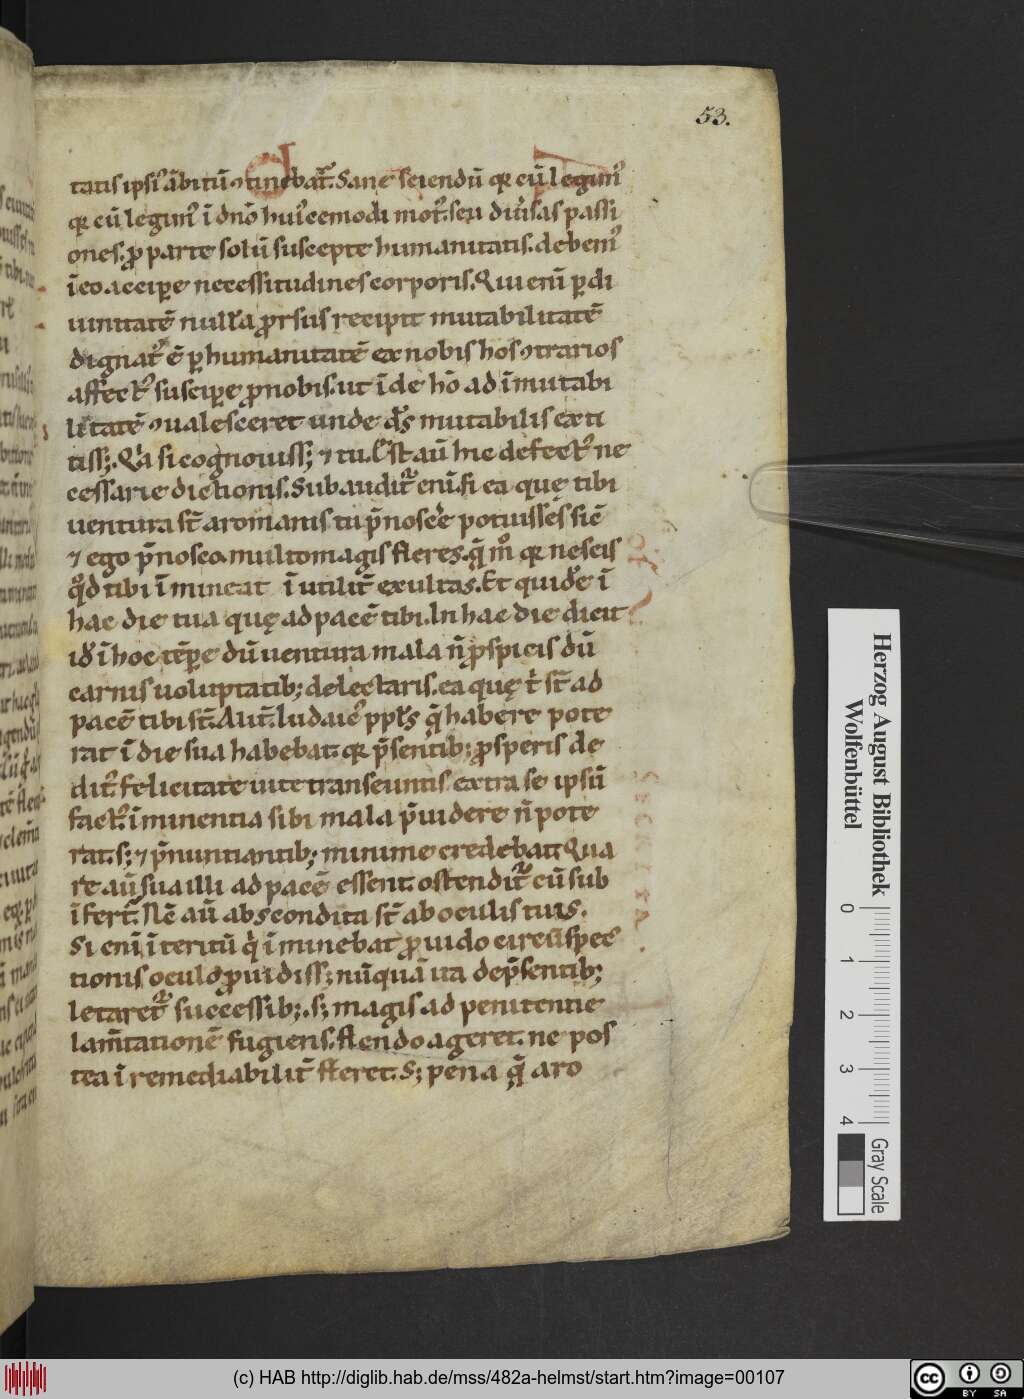 53.
tatis ipsi᷒ ābitū ꝯtinebat᷑. Sane sciendū qꝛ cū legim᷒
qꝛ cū legim᷒ ī dnō hui᷒cemodi mot᷒. seu diu͛sas passi
ones. ꝓ parte solū suscepte humanitatis. debem᷒
ī eo accipe necessitudines corporis. Qui eni̅ ꝑ di
uinitatē nulla ꝓrsus recipit mutabilitatē
dignat᷒ ē ꝑ humanitatē ex nobis hos ꝯtrarios
affect᷒ suscipe ꝓ nobis. ut īde hō ad īmutabi
litatē ꝯualesceret unde mutabilis exti
tiss;. Qͥa si cognouiss; ⁊ tu. Est aū hic defect᷒ ne
cessarie dictionis. Subaudit᷑ eni̅. si ea quę tibi
uentura st̄ a romanis tu p̄noscere potuisses sic̄
⁊ ego p̄nosco. multo magis fleres. q̄ m̊ qꝛ nescis
qd̊ tibi īmineat īutilit̄ exultas. Et quidē ī
hac die tua quę ad pacē tibi. In hac die dicit
id̊ ī hoc tēpe dū uentura mala n̄ ꝓspicis dū
carnis uoluptatib; delectaris. ea quę t̄ st̄ ad
pacē tibi st̄. Aut̄. Iudaic᷒ ppl̄s q̄ habere pote
rat ī die sua habebat. qꝛ p̄sentib; ꝓsperis de
dit᷒ felicitate uite transeuntis. extra se ipsū
fact᷒. īminentia sibi mala p̄uidere n̄ pote
rat. s; ⁊ p̄nuntiantib; minime credebat. Qua
re aū sua illi ad pacē essent. ostendit᷑ cū sub
īfert̄. Nc̄ aū abscondita st̄ ab oculis tuis.
Si eni̅ īteritū q̇ īminebat ꝓuido circūspec
tionis oculo ꝓuidiss; nūquā ita de p̄sentib;
letaret᷑ successib;. s; magis ad penitentie
lam̄tationē fugiens. flendo ageret. ne pos
tea īremediabilit̄ fleret. S; pena q̄ a ro
Herzog August Bibliothek
Wolfenbüttel
0 1 2 3 4
Gray Scale
(c) HAB http://diglib.hab.de/mss/482a-helmst/start.htm?image=00107
cc BY SA